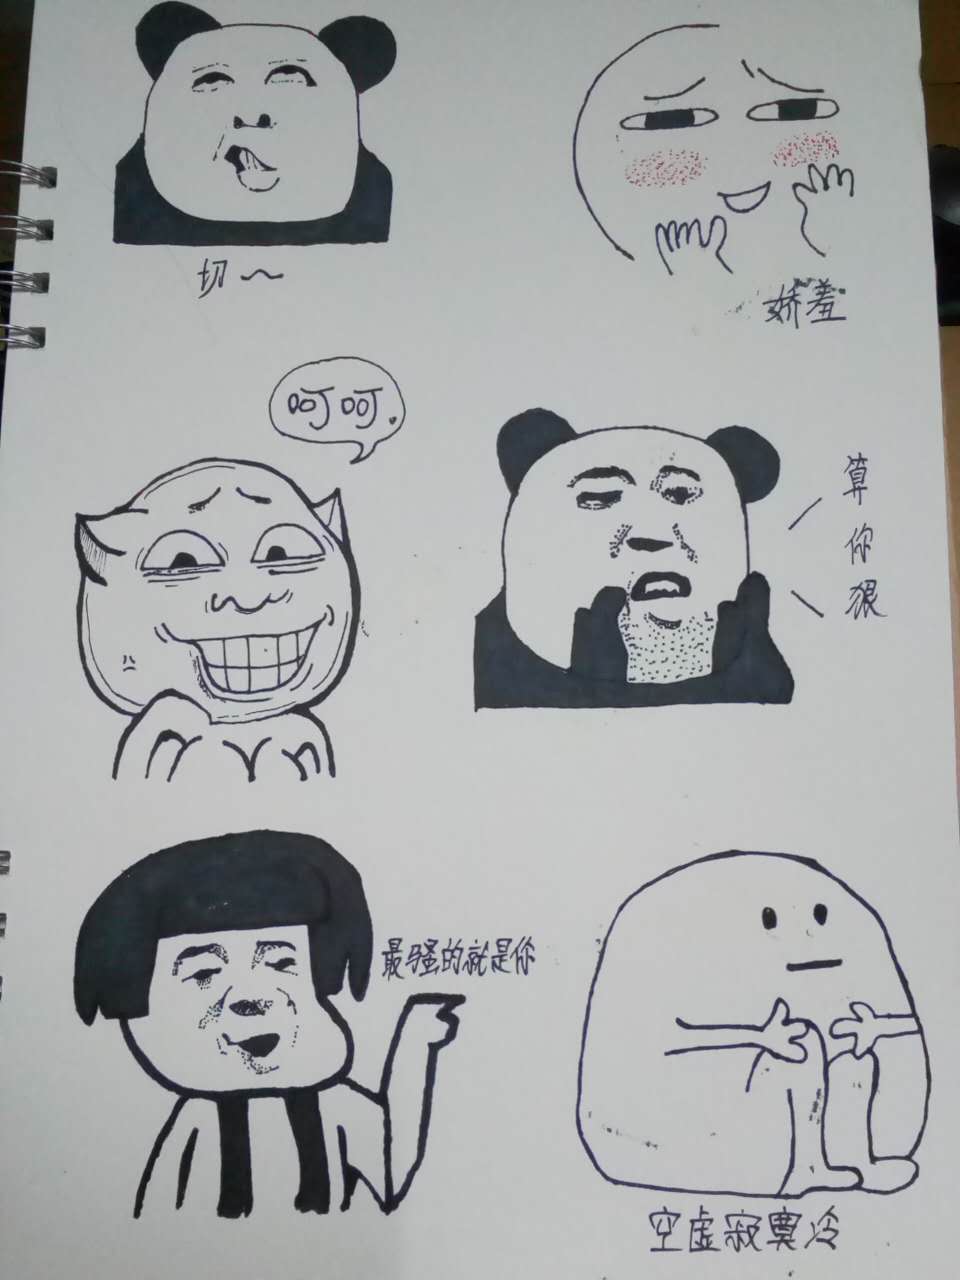 切～
娇羞
呵呵.
算你狠
最骚的就是你
空虚寂寞冷